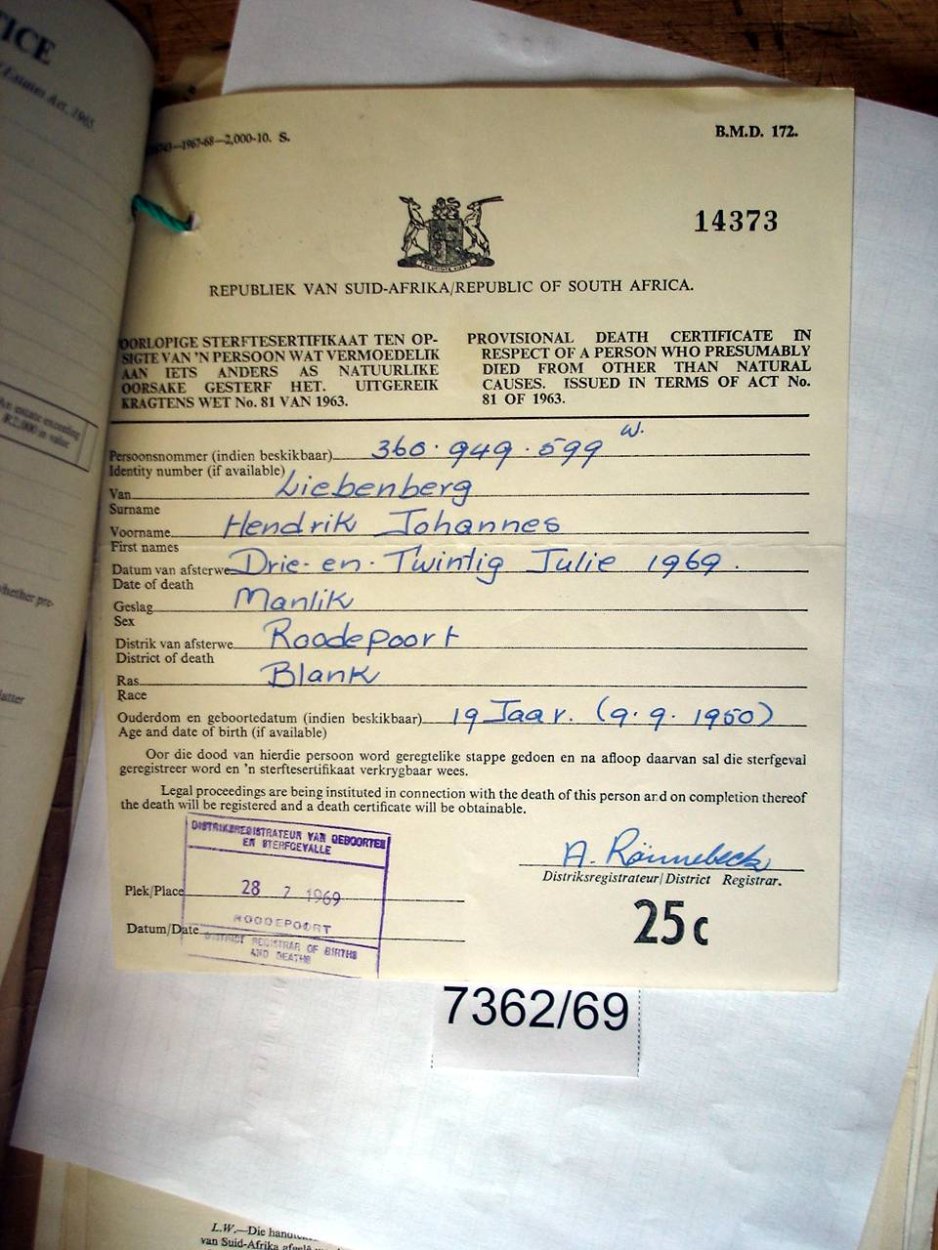 ICE
Estates Act, 1965
—1967-68—2,000-10. S.
B.M.D. 172.
14373
REPUBLIEK VAN SUID-AFRIKA/REPUBLIC OF SOUTH AFRICA.
OORLOPIGE STERFTESERTIFIKAAT TEN OP-
SIGTE VAN 'N PERSOON WAT VERMOEDELIK
AAN IETS ANDERS AS NATUURLIKE
OORSAKE GESTERF HET. UITGEREIK
KRAGTENS WET No. 81 VAN 1963.
PROVISIONAL DEATH CERTIFICATE IN
RESPECT OF A PERSON WHO PRESUMABLY
DIED FROM OTHER THAN NATURAL
CAUSES. ISSUED IN TERMS OF ACT No.
81 OF 1963.
estate exceeding
R2,000 in value
Persoonsnommer (indien beskikbaar) 360·949·599 W.
Identity number (if available)
Van Liebenberg
Surname
Voorname Hendrik Johannes
First names
Datum van afsterwe Drie-en-Twintig Julie 1969.
Date of death
Geslag Manlik
Sex
Distrik van afsterwe Roodepoort
District of death
Ras Blank
Race
Ouderdom en geboortedatum (indien beskikbaar) 19 Jaar. (9.9.1950)
Age and date of birth (if available)
Oor die dood van hierdie persoon word geregtelike stappe gedoen en na afloop daarvan sal die sterfgeval
geregistreer word en 'n sterftesertifikaat verkrygbaar wees.
Legal proceedings are being instituted in connection with the death of this person and on completion thereof
the death will be registered and a death certificate will be obtainable.
DISTRIKSREGISTRATEUR VAN GEBOORTES
EN STERFGEVALLE
A. Rönnebeck
Distriksregistrateur/District Registrar.
Plek/Place
28 7 1969
ROODEPOORT
Datum/Date
DISTRICT REGISTRAR OF BIRTHS
AND DEATHS
25c
7362/69
L.W.—Die
van Suid-Afrika